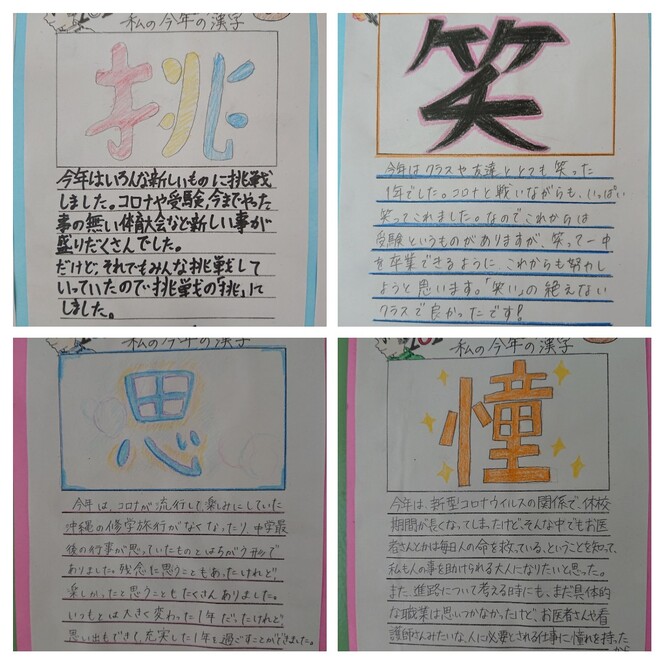 私の今年の漢字
挑
今年はいろんな新しいものに挑戦
しました。コロナや受験、今までやった
事の無い体育大会など新しい事が
盛りだくさんでした。
だけど、それでもみんな挑戦して
いっていたので挑戦の「挑」に
しました。
笑
今年はクラスや友達ととても笑った
1年でした。コロナと戦いながらも、いっぱい
笑ってこれました。なのでこれからは
受験というものがありますが、笑って一中
を卒業できるように これからも努力し
ようと思います。「笑い」の絶えない
クラスで良かったです!
私の今年の漢字
思
今年は、コロナが流行して楽しみにしていた
沖縄の修学旅行がなくなったり、中学最
後の行事が思っていたものとはちがうカタチで
ありました。残念に思うこともあったけれど、
楽しかったと思うこともたくさんありました。
いつもとは大きく変わった1年だったけれど、
思い出もできて、充実した1年を過ごすことができました。
私の今年の漢字
憧
今年は、新型コロナウイルスの関係で、休校
期間が長くなってしまったけど、そんな中でもお医
者さんとかは毎日人の命を救っている、ということを知って、
私も人の事を助けられる大人になりたいと思った。
また、進路について考える時にも、まだ具体的
な職業は思いつかなかったけど、お医者さんや看
護師さんみたいな、人に必要とされる仕事に憧れを持った
から